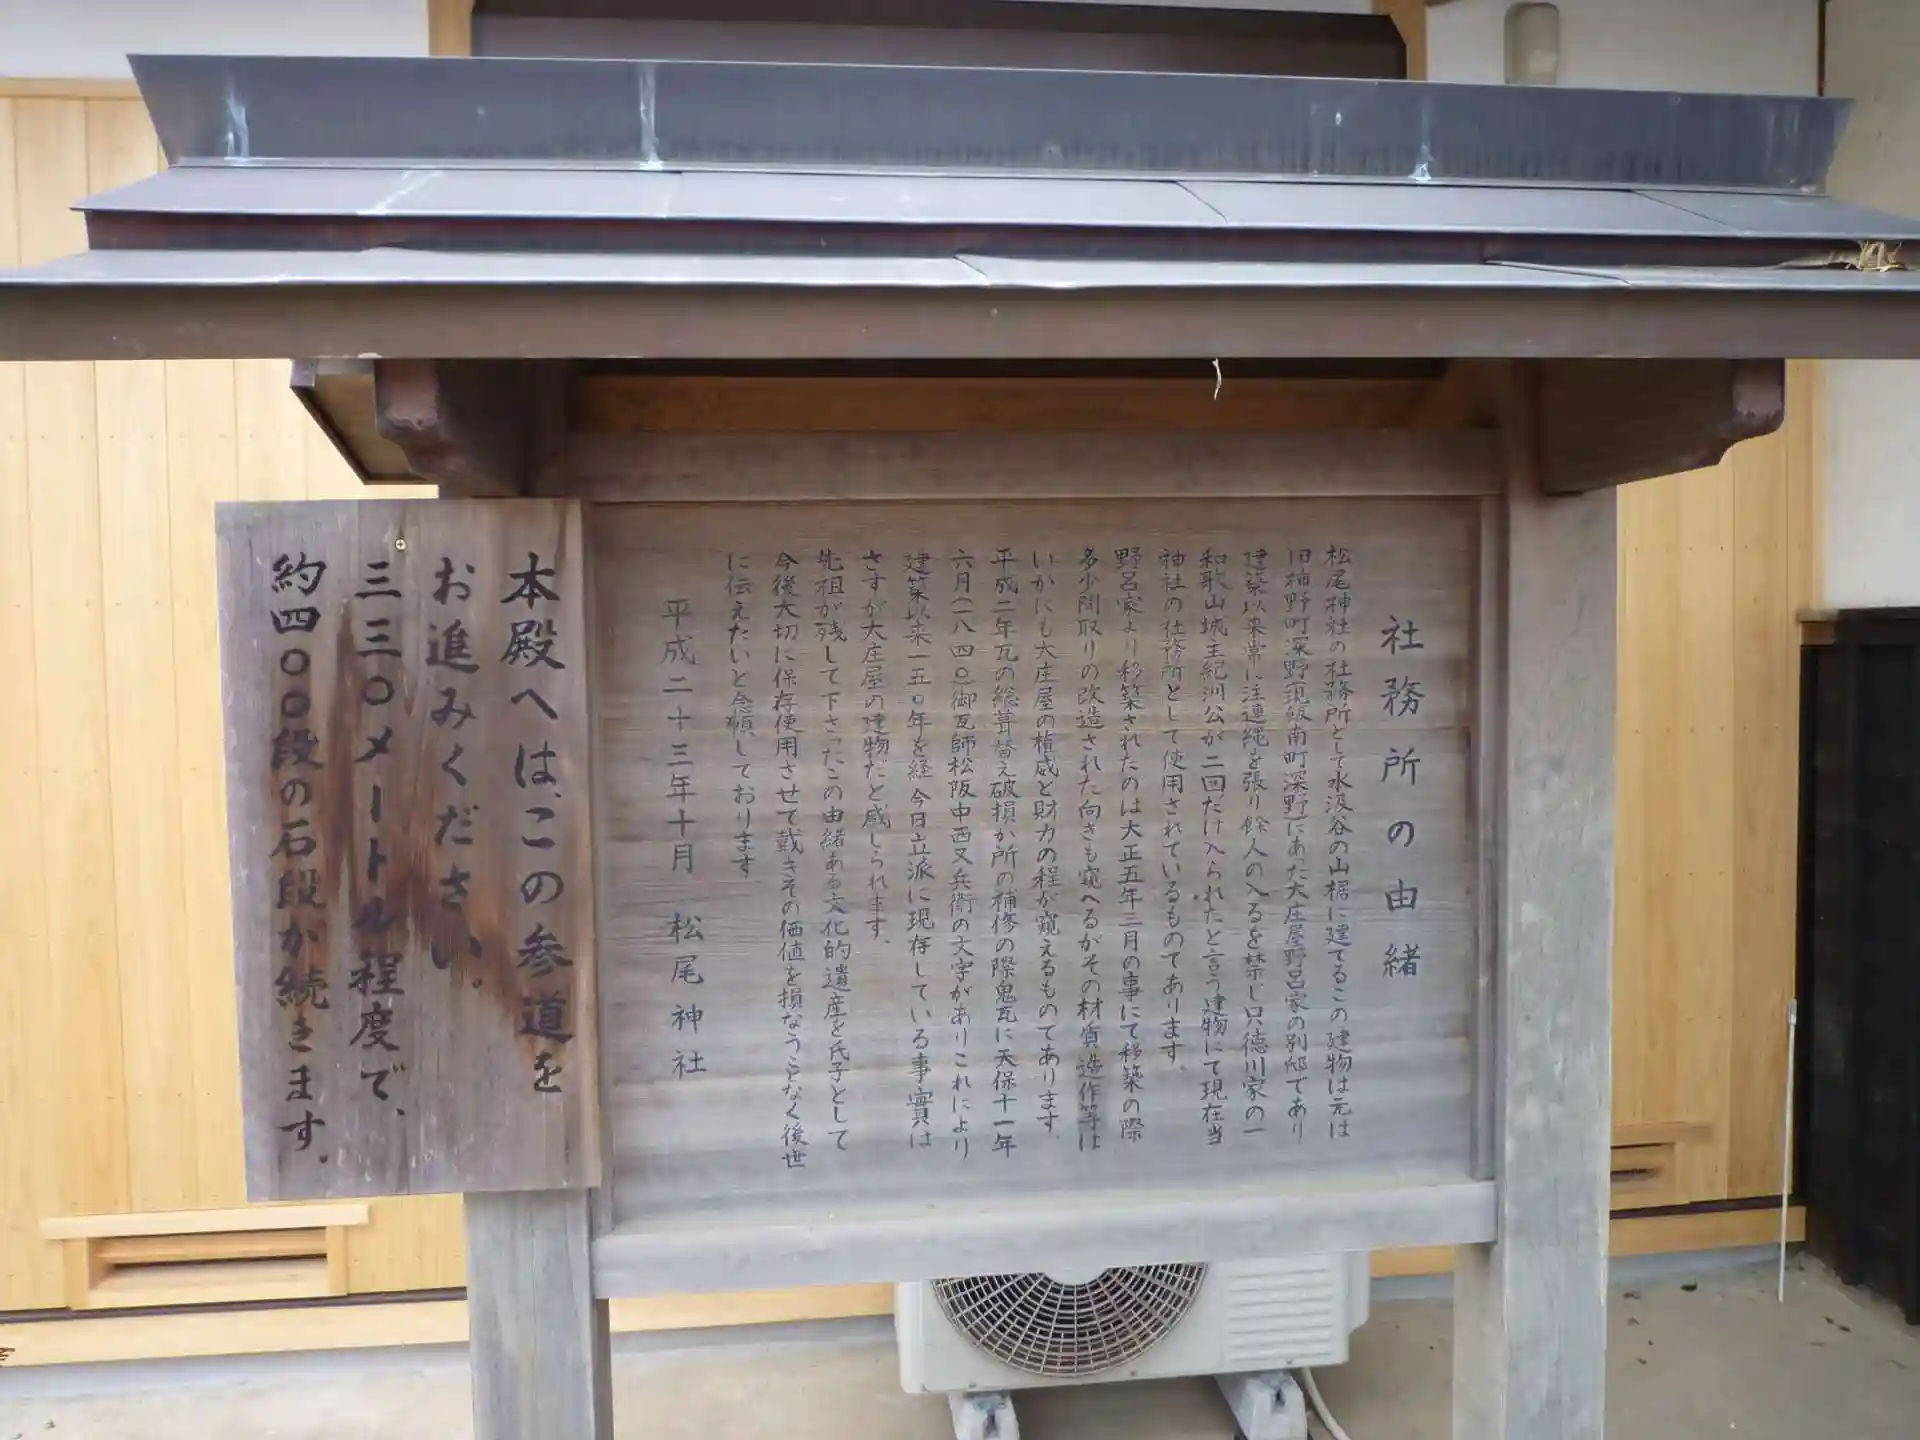 社務所の由緒
松尾神社の社務所として水汲谷の山裾に建てるこの建物は元は
旧柿野町深野現飯南町深野にあった大庄屋野呂家の別邸であり
建築以来常に注連縄を張り餘人の入るを禁じ只徳川家の一
和歌山城主紀州公が二回だけ入られたと言う建物にて現在当
神社の社務所として使用されているものであります。
野呂家より移築されたのは大正五年三月の事にて移築の際
多少間取りの改造された向きも窺へるがその材質造作等は
いかにも大庄屋の権威と財力の程が窺えるものであります。
平成二年瓦の総葺替え破損か所の補修の際鬼瓦に天保十一年
六月(一八四〇)御瓦師松阪中西又兵衛の文字がありこれにより
建築以来一五〇年を経今日立派に現存している事實は
さすが大庄屋の建物だと感じられます。
先祖が残して下さったこの由緒ある文化的遺産を氏子として
今後大切に保存使用させて戴きその価値を損なうことなく後世
に伝えたいと念願しております
平成二十三年十月 松尾神社
本殿へは、この参道を
お進みください。
三三〇メートル程度で、
約四〇〇段の石段が続きます。